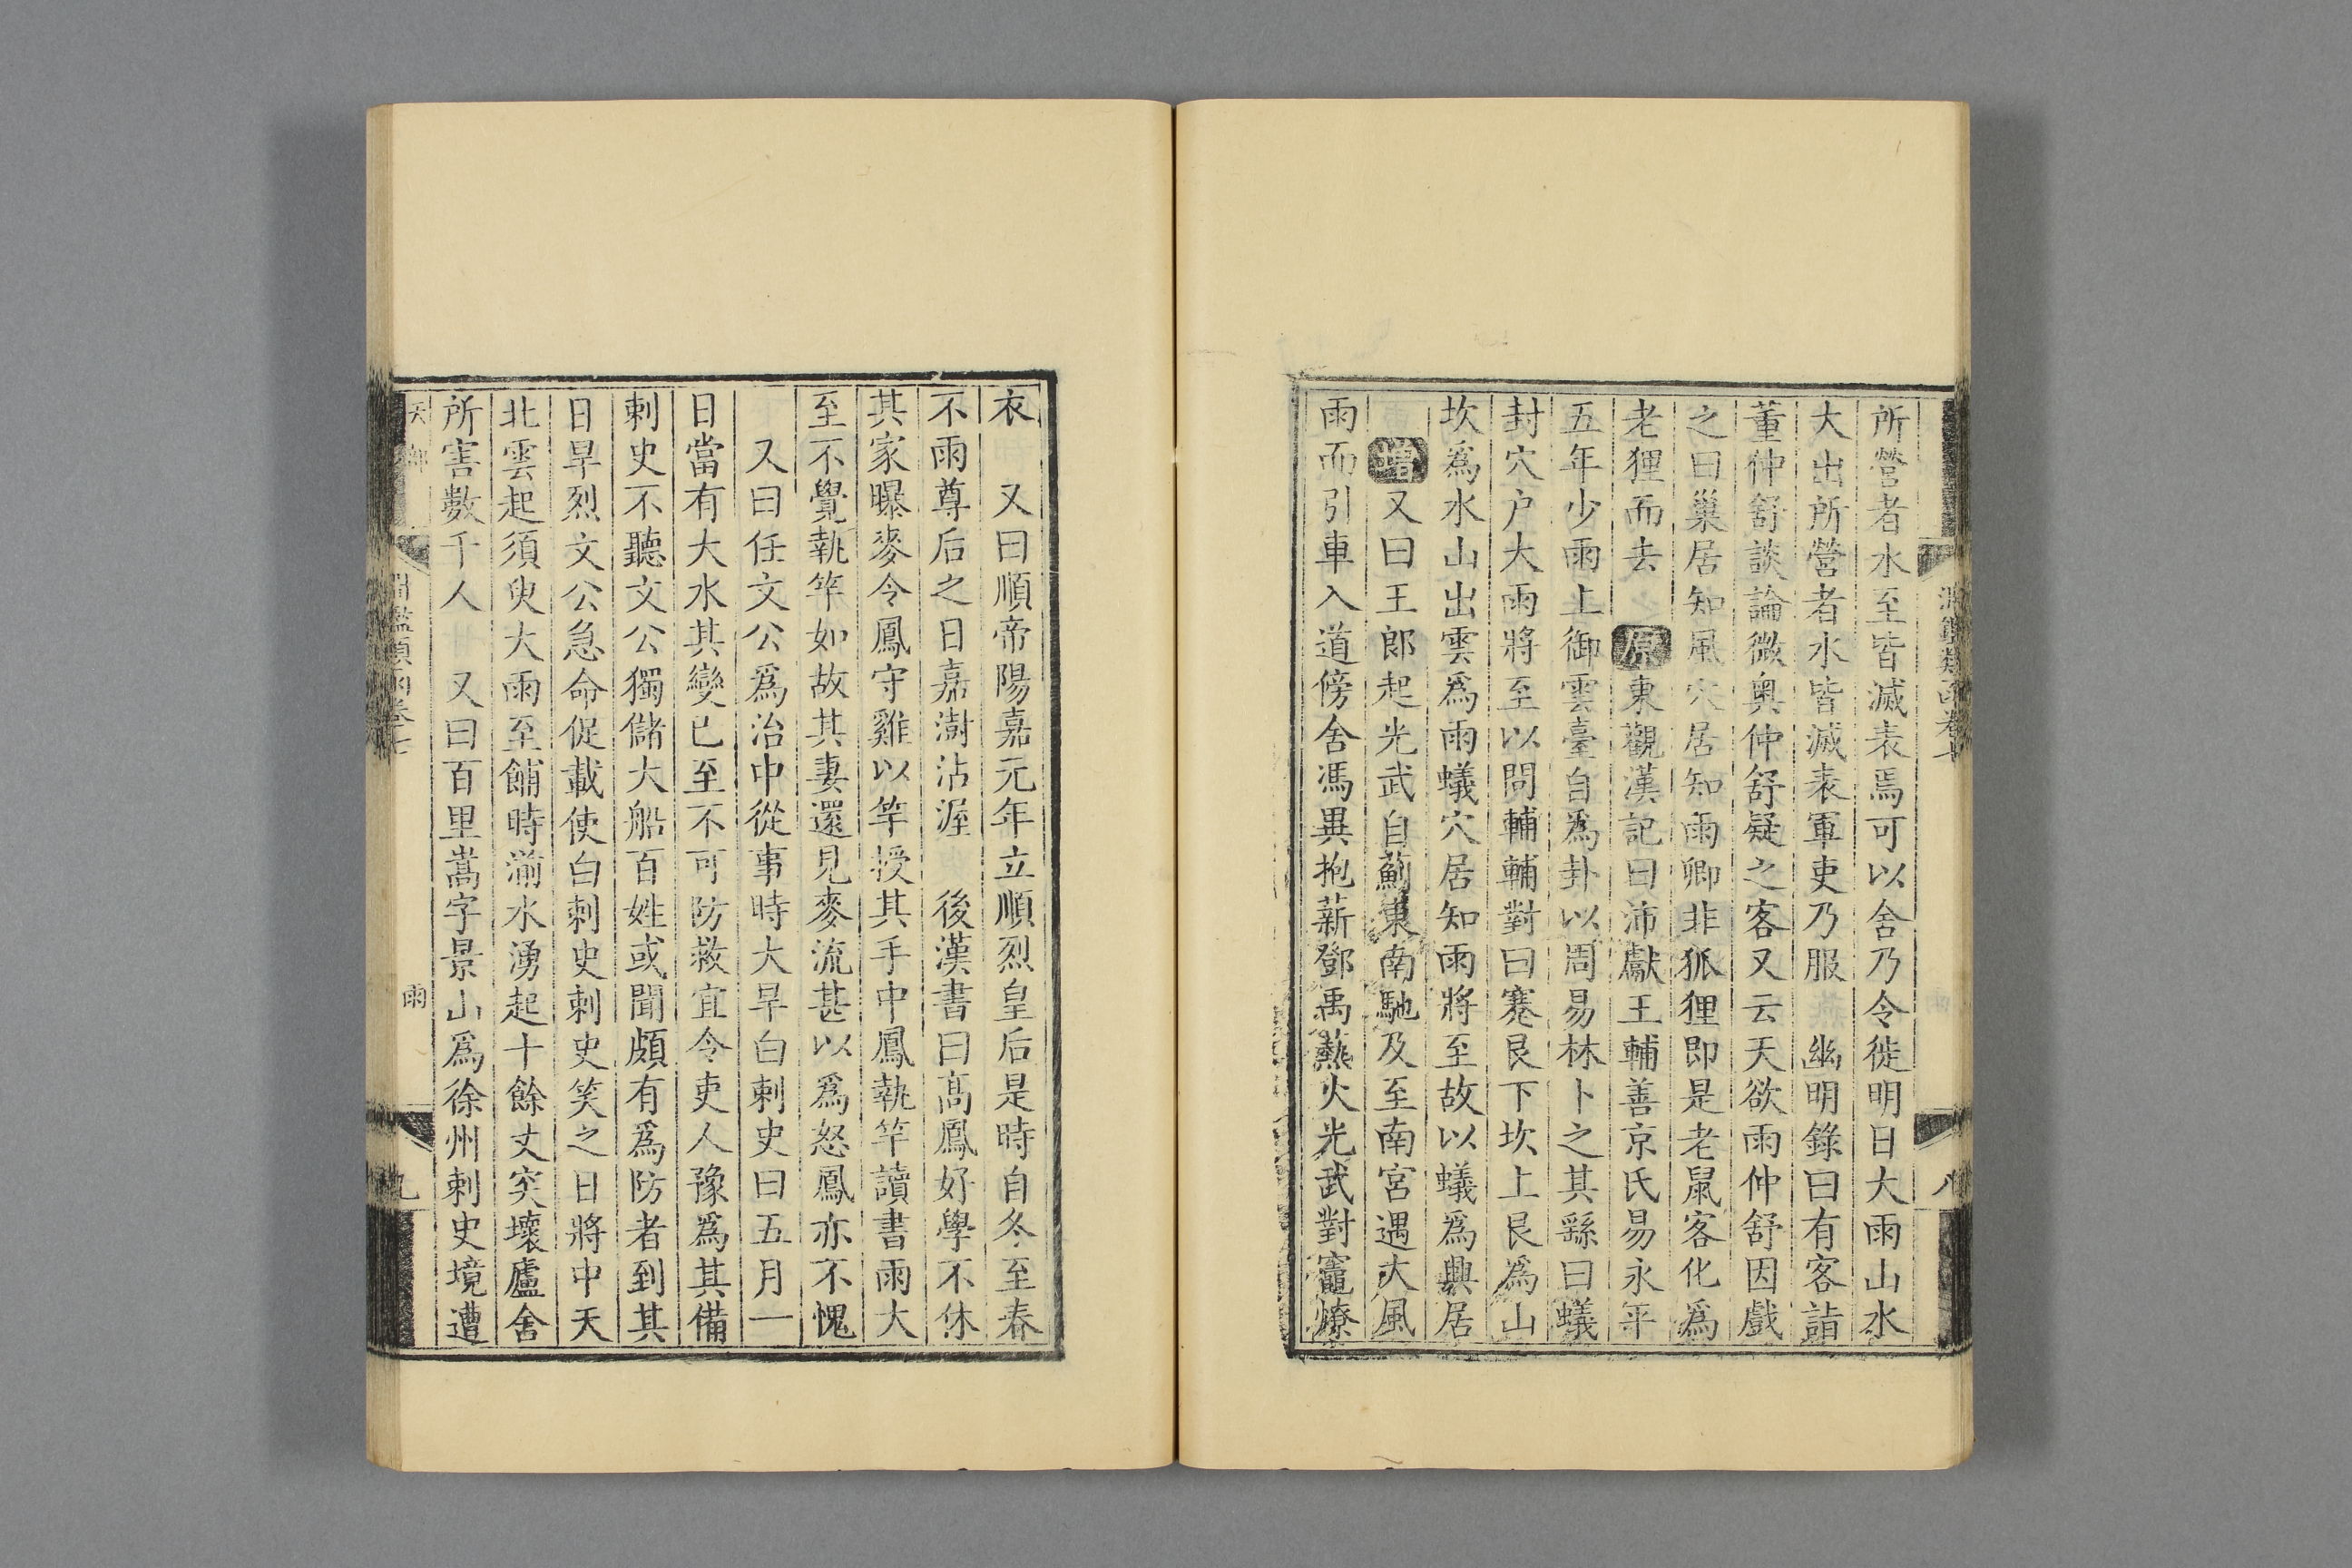 所營者水至皆滅表焉可以舍乃令徙明日大雨山水
大出所營者水皆滅表軍吏乃服　幽明錄曰有客詣
董仲舒談論微奥仲舒疑之客又云天欲雨仲舒因戲
之曰巢居知風穴居知雨卿非狐狸即是老鼠客化爲
老狸而去　原東觀漢記曰沛獻王輔善京氏易永平
五年少雨上御雲臺自爲卦以周易林卜之其繇曰蟻
封穴户大雨將至以問輔輔對曰蹇艮下坎上艮爲山
坎爲水山出雲爲雨蟻穴居知雨將至故以蟻爲興居
增又曰王郎起光武自薊東南馳及至南宮遇大風
雨而引車入道傍舍馮異抱薪鄧禹爇火光武對竈燎
衣　又曰順帝陽嘉元年立順烈皇后是時自冬至春
不雨尊后之日嘉澍沾渥　後漢書曰高鳳好學不休
其家曝麥令鳳守雞以竿授其手中鳳執竿讀書雨大
至不覺執竿如故其妻還見麥流甚以爲怒鳳亦不愧
又曰任文公爲治中從事時大旱白刺史曰五月一
日當有大水其變已至不可防救宜令吏人豫爲其備
刺史不聽文公獨儲大船百姓或聞頗有爲防者到其
日旱烈文公急命促載使白刺史刺史笑之日將中天
北雲起須臾大雨至餔時湔水湧起十餘丈突壞廬舍
所害數千人　又曰百里嵩字景山爲徐州刺史境遭
雨